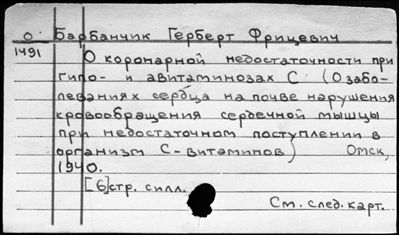 О Барбанчик Герберт Фрицевич
1491 О коронарной недостаточности при
гипо- и авитаминозах С (О забо-
леваниях сердца на почве нарушения
кровообращения сердечной мышцы
при недостаточном поступлении в
организм С-витаминов) Омск,
1940.
[6]стр. силл.
См. след. карт.